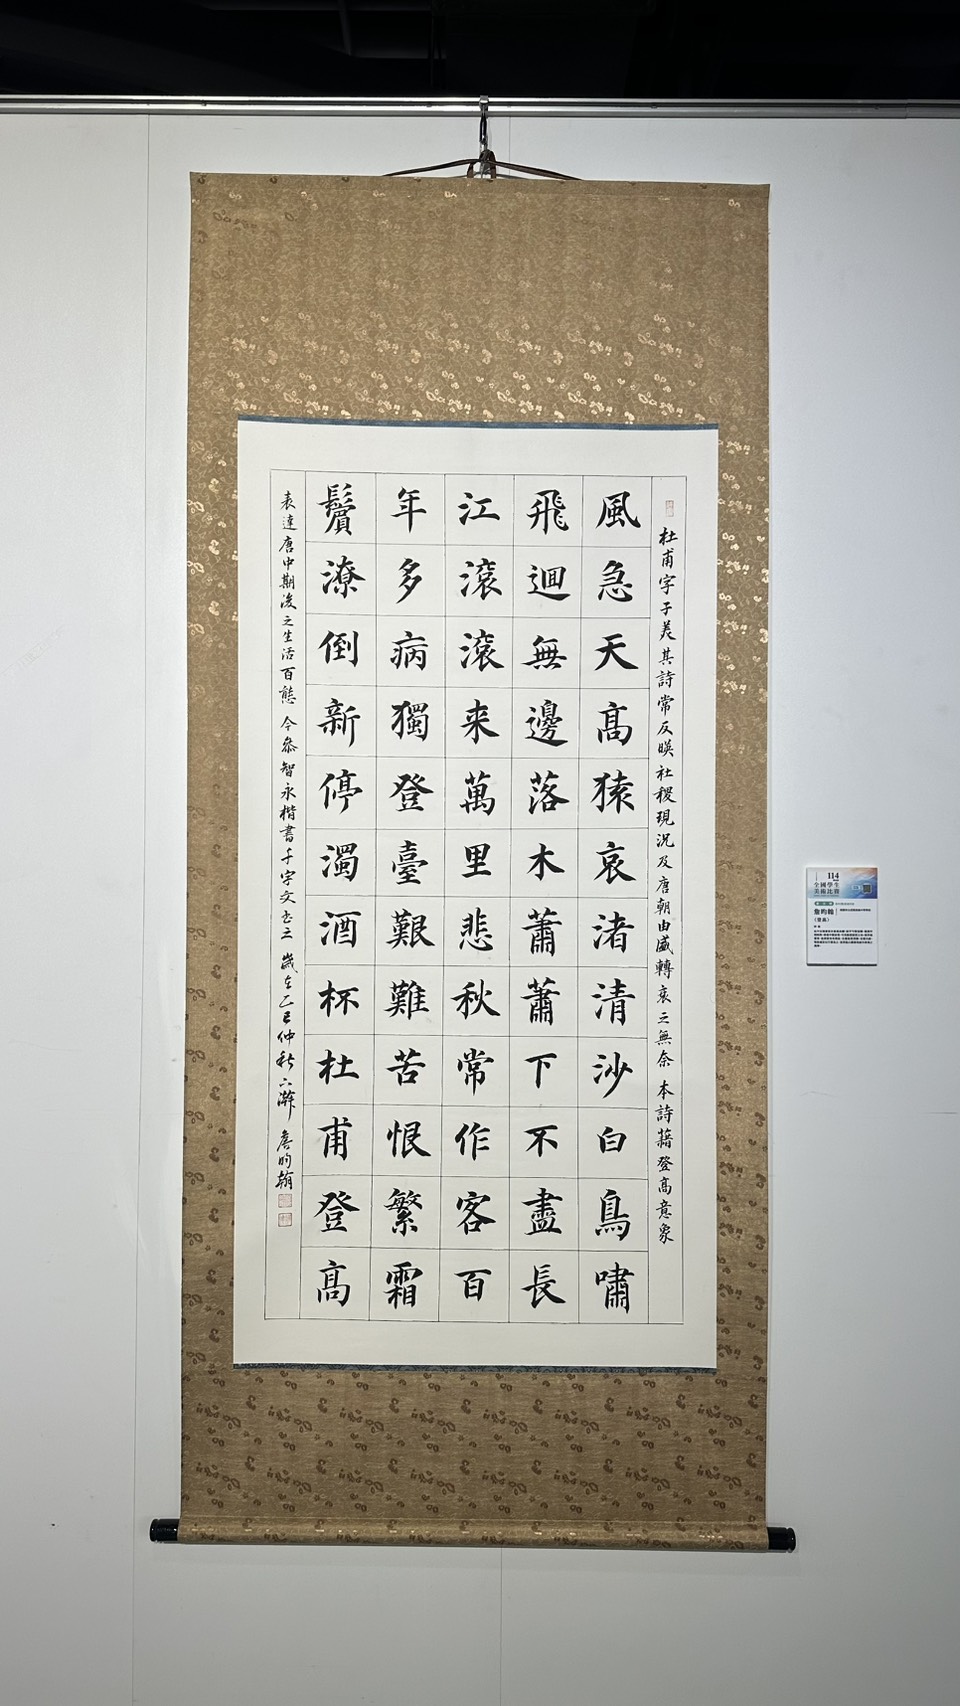 杜甫字子美其詩常反映社稷現況及唐朝由盛轉衰之無奈 本詩藉登高意象
風急天髙猿哀渚清沙白鳥嘯
飛迴無邊落木蕭蕭下不盡長
江滾滾来萬里悲秋常作客百
年多病獨登臺艱難苦恨繁霜
鬢潦倒新停濁酒杯杜甫登髙
表達唐中期後之生活百態 今叅智永楷書千字文書之 歲在乙巳仲秋 詹昀翰
114
全國學生
美術比賽
詹昀翰
《登高》